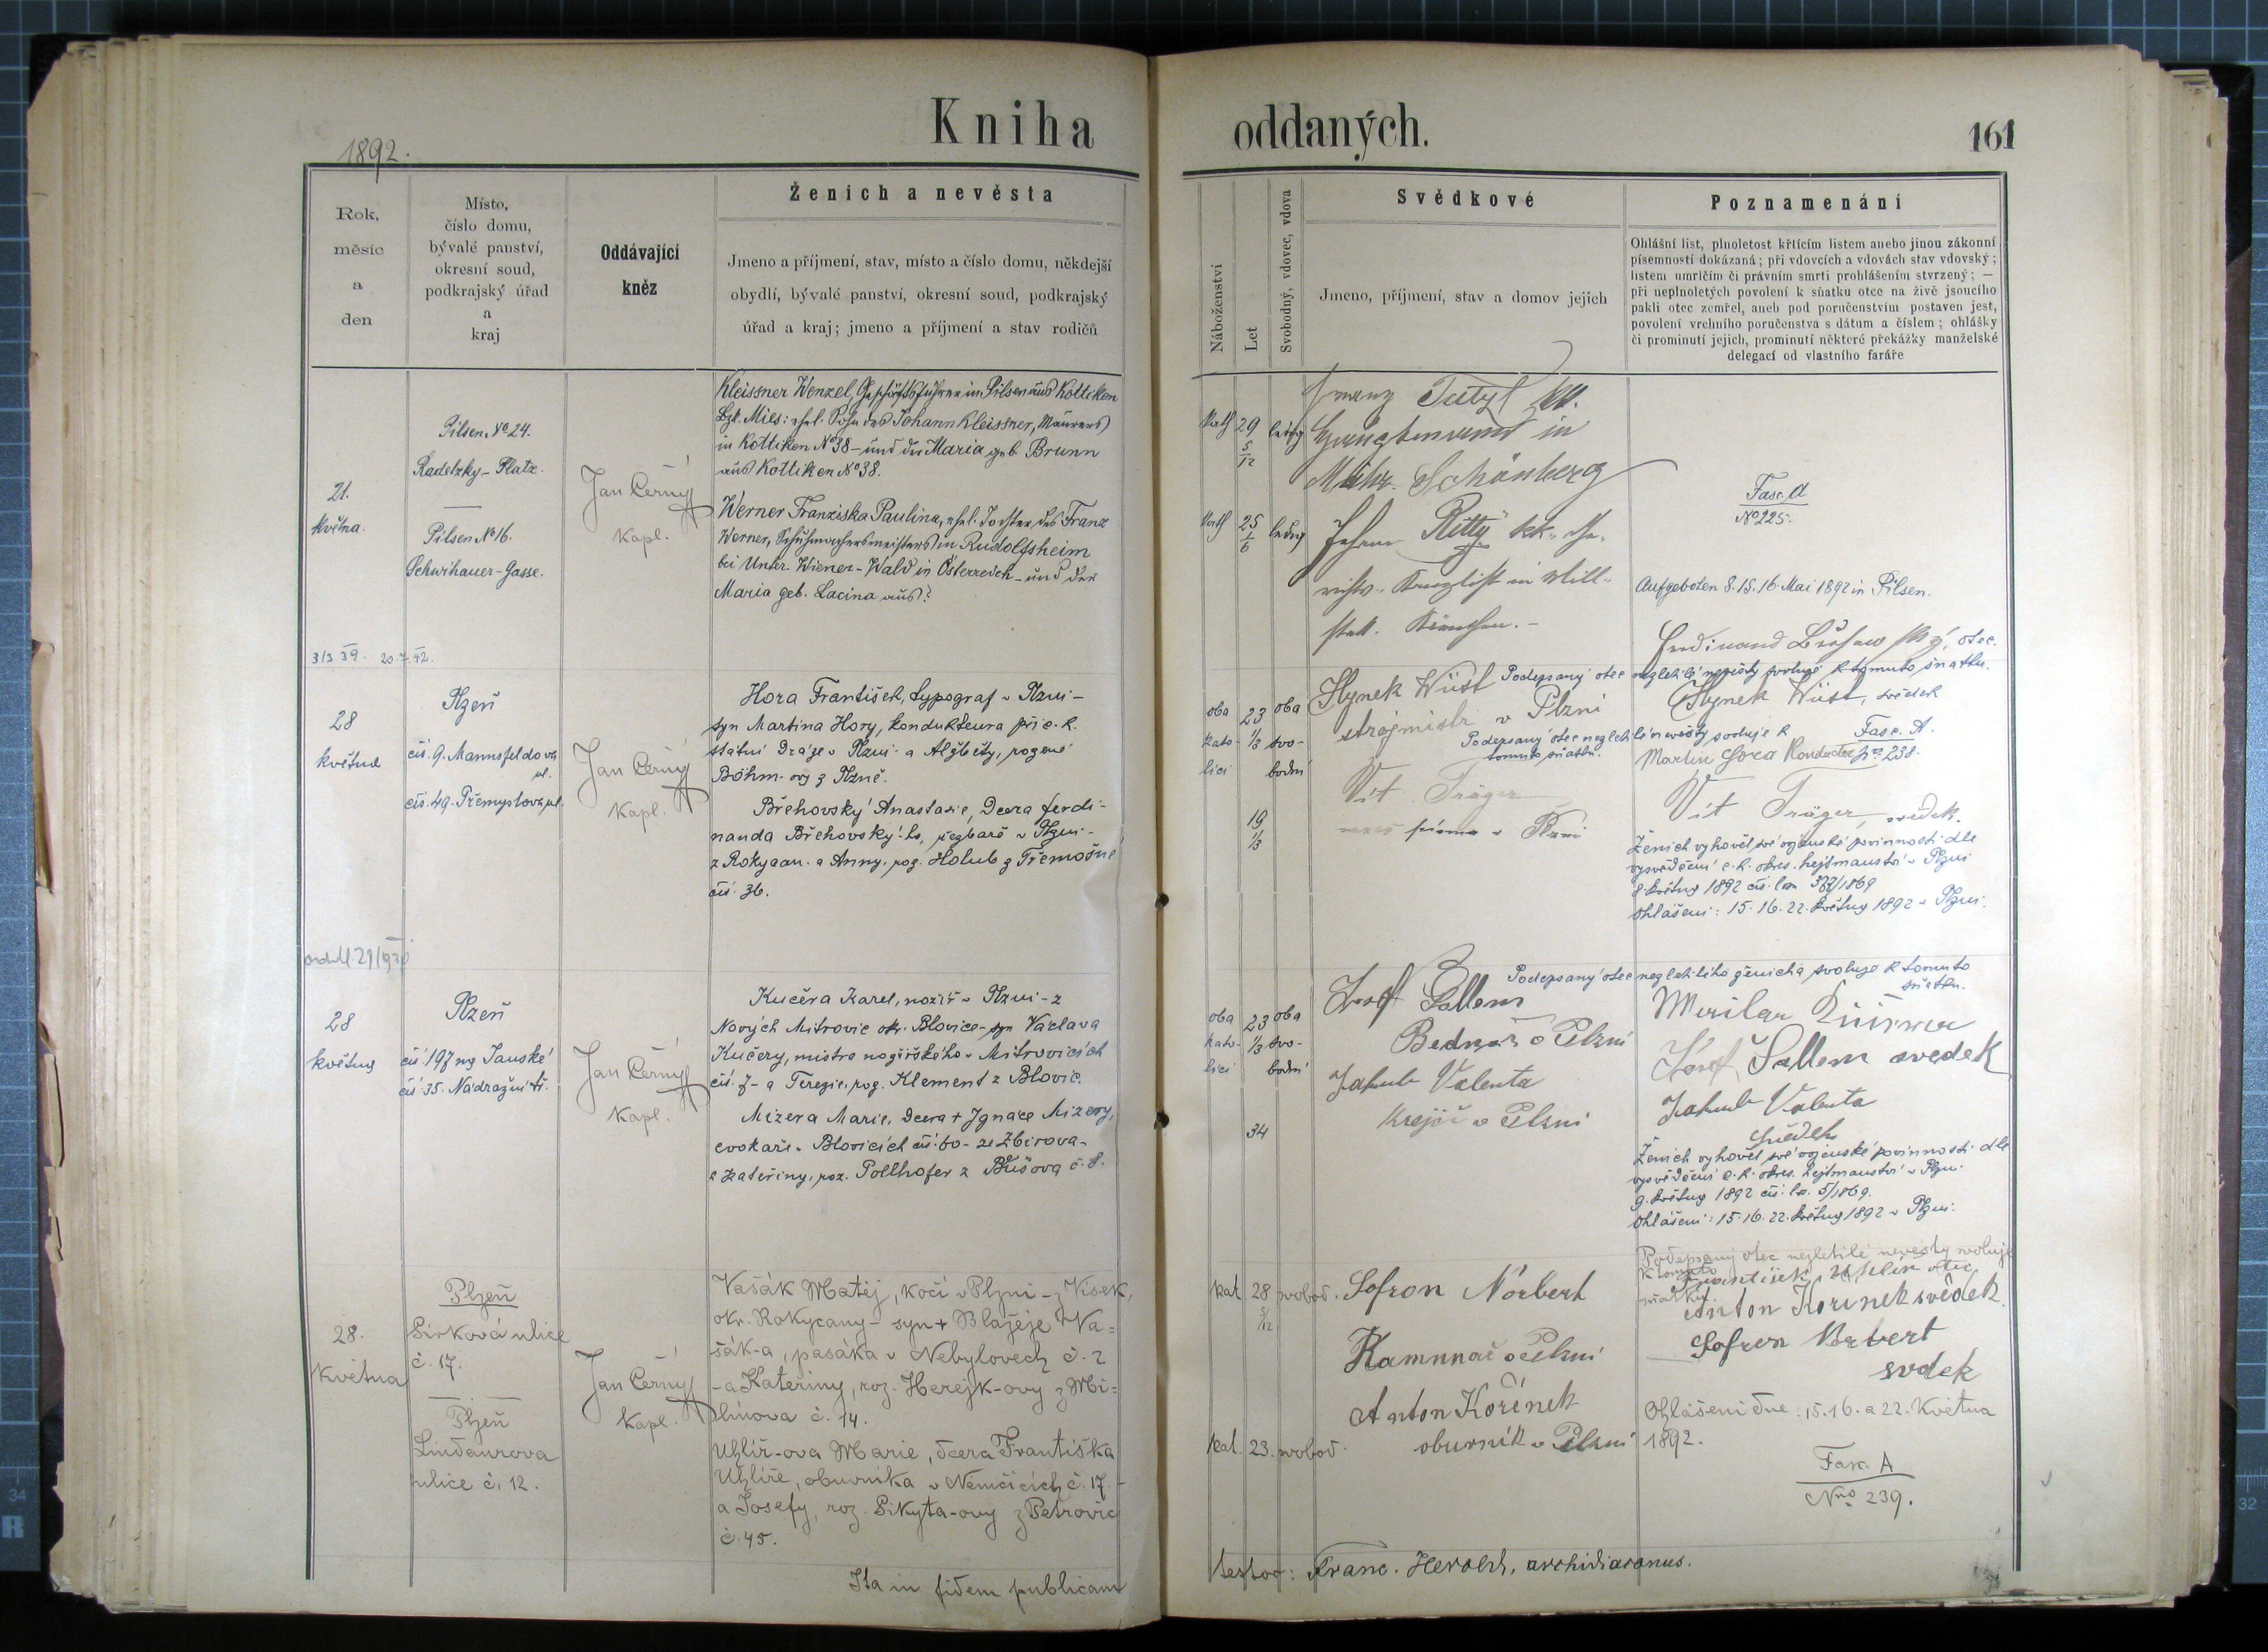 Kniha oddaných.
1892.
161
Rok,
měsíc
a
den
Místo,
číslo domu,
bývalé panství,
okresní soud,
podkrajský úřad
a
kraj
Oddávající
kněz
Ženich a nevěsta
Jmeno a příjmení, stav, místo a číslo domu, někdejší
obydlí, bývalé panství, okresní soud, podkrajský
úřad a kraj; jmeno a příjmení a stav rodičů
Náboženství
Let
Svobodný, vdovec, vdova
Svědkové
Jmeno, příjmení, stav a domov jejich
Poznamenání
Ohlášní list, plnoletost křtícím listem anebo jinou zákonní
písemností dokázaná; při vdovcích a vdovách stav vdovský;
listem umrlčím či právním smrti prohlášením stvrzený; —
při neplnoletých povolení k sňatku otce na živě jsoucího
pakli otec zemřel, aneb pod poručenstvím postaven jest,
povolení vrchního poručenstva s dátum a číslem; ohlášky
či prominutí jejich, prominutí některé překážky manželské
delegací od vlastního faráře
21.
května.
Pilsen No 24.
Radetzky-Platz.
Pilsen No 16.
Schwihauer-Gasse.
Jan Černý
Kapl.
Kleissner Wenzel, Geschäftsführer in Pilsen aus Kottiken
Bzk. Mies: ehel. Sohn des Johann Kleissner, Maurers
in Kottiken No 38 - und der Maria geb. Brunn
aus Kottiken No 38.
Werner Franziska Paulina, ehel. Tochter des Franz
Werner, Schuhmachermeisters in Rudolfsheim
bei Unter-Wiener-Wald in Österreich - und der
Maria geb. Lacina aus?
Kath 29 5/12 ledig
Kath 25 1/6 ledig
Franz Tutzl kk.
Hauptmann in
Mähr. Schönberg
Johann Ritty kk.
Fasc. A
No 225.
Aufgeboten 8. 15. 16. Mai 1892 in Pilsen.
3/3 39. 20.7.42.
28
května
Plzeň
čís. 9. Mannsfeldova
ul.
čís. 49. Přemyslova ul.
Jan Černý
Kapl.
Hora František, typograf v Plzni -
syn Martina Hory, kondukteura při c. k.
státní dráze v Plzni a Alžběty, rozené
Böhm-ovy z Plzně.
Břehovský Anastasie, dcera Ferdi-
nanda Břehovský-ho, řezbáře v Plzni -
z Rokycan a Anny, roz. Holub z Třemošné
čís. 36.
oba 23 oba
kato- 1/3 svo-
líci bodni
19
1/3
Hynek Wüst
strojmistr v Plzni
Vít Träger
v Plzni
Ferdinand Břehowský, otec.
Podepsaný otec nezletilé nevěsty svoluje k tomuto sňatku.
Hynek Wüst, svědek
Podepsaný otec nezletilé nevěsty svoluje k
tomuto sňatku.
Fasc. A.
No 238.
Martin Hora Kondukter
Vít Träger, svědek.
Ženich vyhověl své vojenské povinnosti dle
vysvědčení c. k. okres. hejtmanství v Plzni
8. května 1892
Ohlášení: 15. 16. 22. května 1892 v Plzni.
28
května
Plzeň
čís. 35. Nádražní tř.
Jan Černý
Kapl.
Kučera Karel, nožíř v Plzni - z
Nových Mitrovic okr. Blovice - syn Václava
Kučery, mistra nožířského v Mitrovicích
čís. 7 - a Terezie, roz. Klement z Blovic.
Mizera Marie, dcera + Ignáce Mizery,
cvokaře v Blovicích čís. 60 - ze Zbirova -
a Kateřiny, roz. Pollhofer z
oba 23 oba
kato- 1/3 svo-
líci bodni
34
Josef Sallem
Bednář v Plzni
Jakub Valenta
Krejčí v Plzni
Podepsaný otec nezletilého ženicha svoluje k tomuto
sňatku.
Josef Sallem svedek
Jakub Valenta
svědek
Ženich vyhověl své vojenské povinnosti dle
vysvědčení c. k. okres. hejtmanství v Plzni
9. května 1892 čís. 5/1869.
Ohlášení: 15. 16. 22. května 1892 v Plzni.
28.
Května
Plzeň
Sirková ulice
č. 17.
Plzeň
Lindaurova
ulice č. 12.
Jan Černý
Kapl.
Vašák Matěj, kočí v Plzni - z Vísek,
okr. Rokycany - syn + Blažeje Va=
šák-a, pasáka v Nebylovech č. 2
- a Kateřiny, roz. Herejk-ovy z Mi=
línova č. 14.
Uhlíř-ova Marie, dcera Františka
Uhlíře, obuvníka v Němčicích č. 17. -
a Josefy, roz. Pikyta-ovy z Petrovic
č. 45.
kat. 28 5/12 svobod.
kat. 23. svobod.
Sofron Nórbert
v Plzni
Anton Kořínek
obuvník v Plzni
Podepsaný otec nezletilé nevěsty svoluje
k tomuto
sňatku.
František Uhlíř otec
Anton Korinek svědek.
Sofron Norbert
svdek
Ohlášení dne: 15. 16. a 22. Května
1892.
Fasc. A
Nro 239.
Ita in fidem publicam
testor: Franc. Herold, archidiaconus.